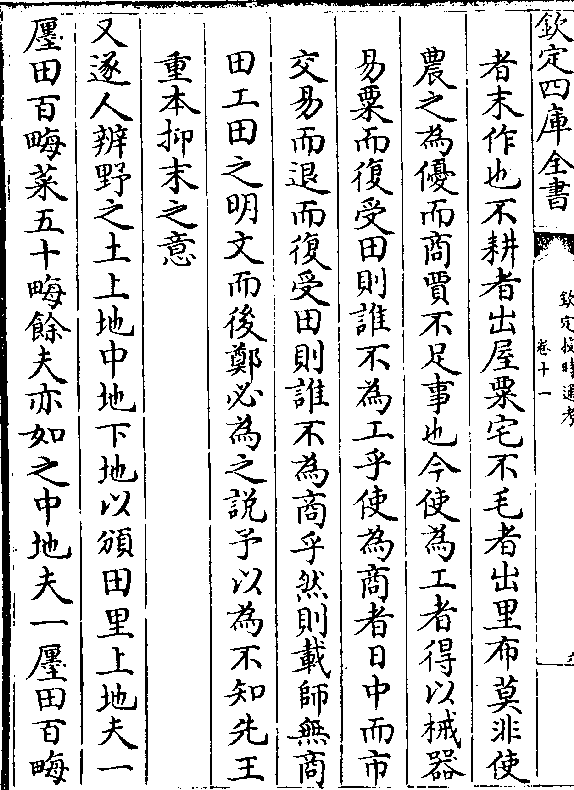 欽定四庫全書
欽定授時通考
卷十一
者末作也不耕者出屋粟宅不毛者出里布莫非使
農之為優而商賈不足事也今使為工者得以械器
易粟而復受田則誰不為工乎使為商者日中而市
交易而退而復受田則誰不為商乎然則載師無商
田工田之明文而後鄭必為之說予以為不知先王
重本抑末之意
又遂人辨野之土上地中地下地以頒田里上地夫一
廛田百畮萊五十畮餘夫亦如之中地夫一廛田百畮